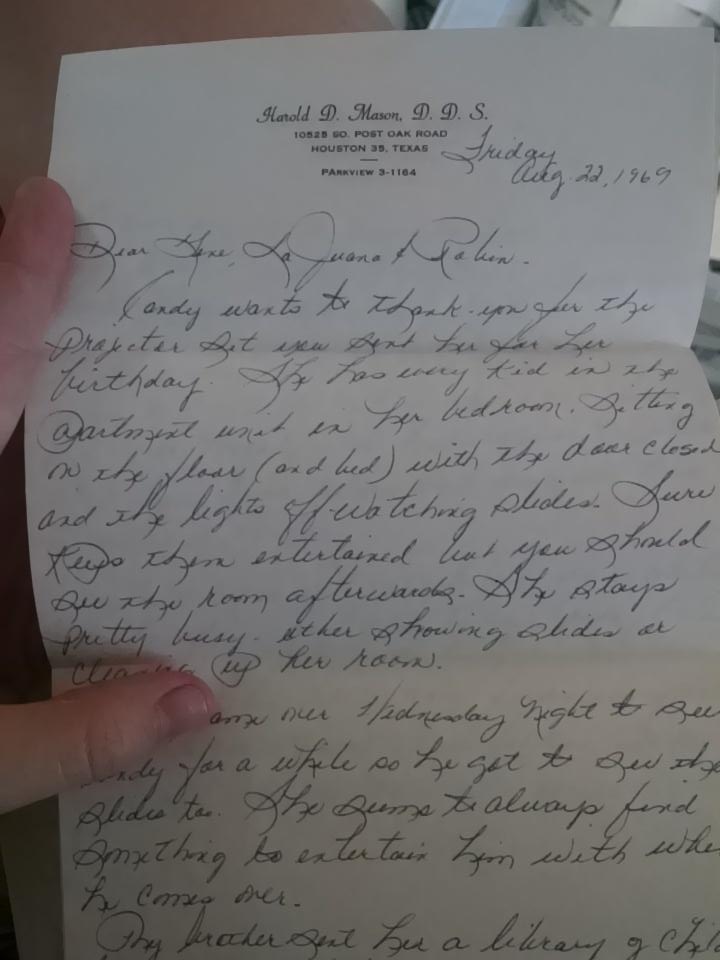 Harold D. Mason, D. D. S.
10525 SO. POST OAK ROAD
HOUSTON 35, TEXAS
PARKVIEW 3-1164
Friday
Aug. 22, 1969
Dear Gene, LaJuana & Robin.
Candy wants to thank-you for the
Projector set you sent her for her
birthday. She has every kid in the
apartment unit in her bedroom. Sitting
on the floor (and bed) with the door closed
and the lights off-watching slides. Sure
keeps them entertained but you should
see the room afterwards. She stays
pretty busy- either showing slides or
cleaning up her room.
ame over Wednesday Night to see
ndy for a while so he got to see the
slides too. She seems to always find
something to entertain him with whe
he comes over.
My brother sent her a library of chil